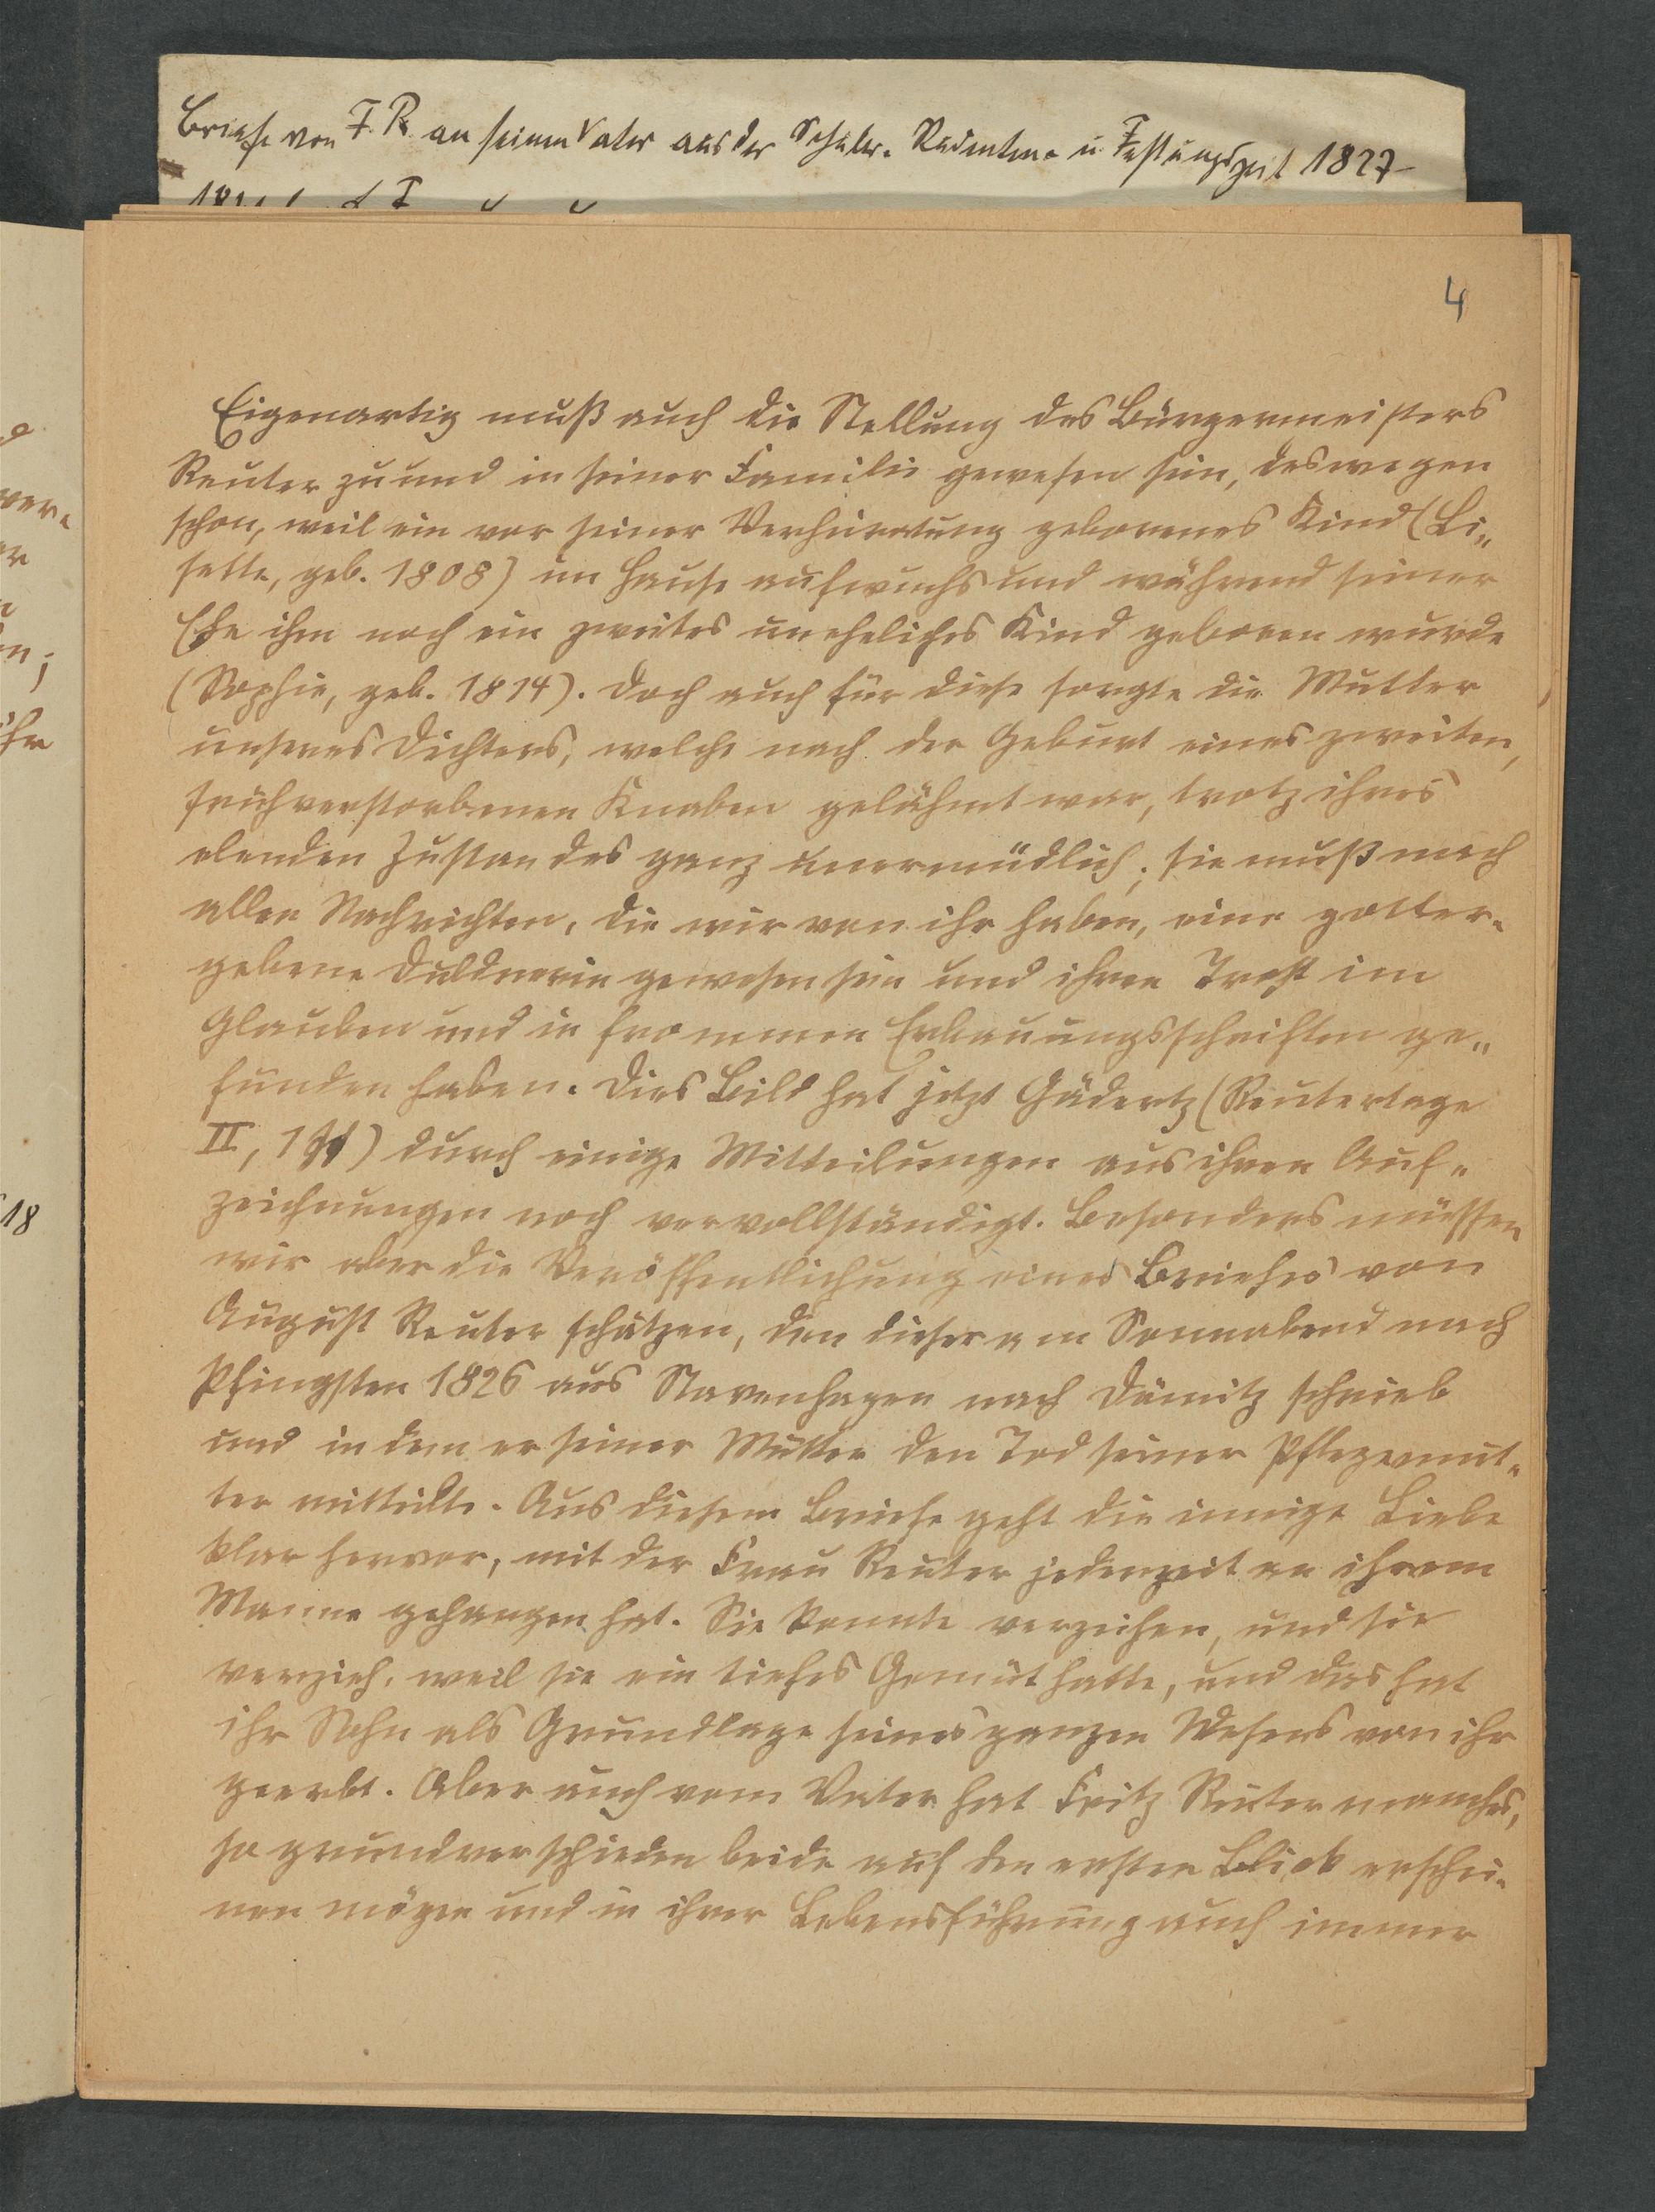 Briefe von F. R. an seinen Vater aus der Schüler- Studenten- u Festungszeit 1827-
4
Eigenartig muß auch die Stellung des Bürgermeisters
Reuter zu und in seiner Familie gewesen sein, deswegen
schon, weil ein vor seiner Verheiratung geborenes Kind (Li„
sette, geb. 1808) im Hause aufwuchs und während seiner
Ehe ihm noch ein zweites uneheliches Kind geboren wurde
(Sophie, geb. 1814). Doch auch für diese sorgte die Mutter
unseres Dichters, welche nach der Geburt eines zweiten,
frühverstorbenen Knaben gelähmt war, trotz ihres
elenden Zustandes ganz unermüdlich; sie muß nach
allen Nachrichten, die wir von ihr haben, eine gotter-
gebene Dulderin gewesen sein und ihren Trost im
Glauben und in frommen Erbauungsschriften ge„
funden haben. Dies Bild hat jetzt Gädertz (Reutertage
II, ) durch einige Mitteilungen aus ihren Auf„
zeichnungen noch vervollständigt. Besonders müssen
wir aber die Veröffentlichung eines Briefes von
August Reuter schätzen, den dieser am Sonnabend nach
Pfingsten 1826 aus Stavenhagen nach Dömitz schrieb
und in dem er seiner Mutter den Tod seiner Pflegemut„
ter mitteilte. Aus diesem Briefe geht die innige Liebe
klar hervor, mit der Frau Reuter jederzeit an ihrem
Manne gehangen hat. Sie konnte verzeihen, und sie
verzieh, weil sie ein tiefes Gemüt hatte, und das hat
ihr Sohn als Grundlage seines ganzen Wesens von ihr
geerbt. Aber auch vom Vater hat Fritz Reuter manches,
so grundverschieden beide auf den ersten Blick erschei-
nen mögen und in ihrer Lebensführung auch immer
18